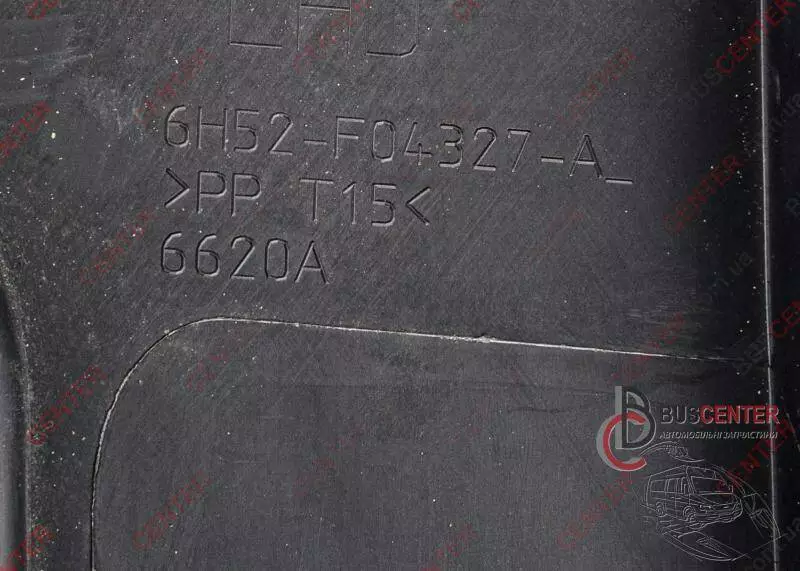 LHD
6H52-F04327-A_
>PP T15<
6620A
BUSCENTER
АВТОМОБІЛЬНІ ЗАПЧАСТИНИ